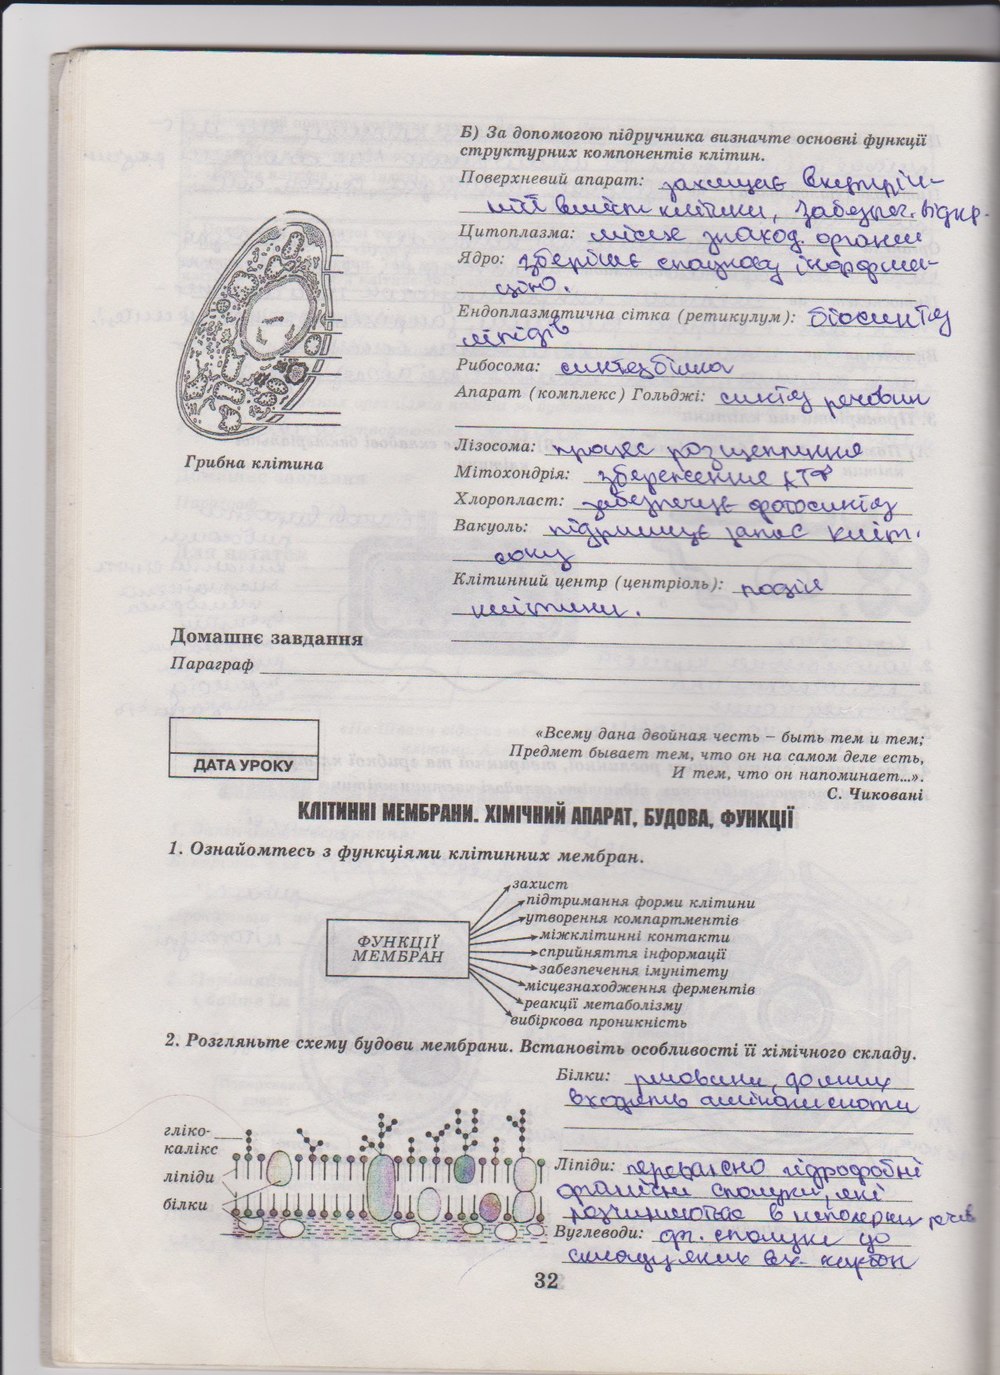 Б) За допомогою підручника визначте основні функції
структурних компонентів клітин.
Поверхневий апарат: захищає внутріш-
ній вміст клітини, забезпеч. відкр.
Цитоплазма: місце знаход. органел
Ядро: зберігає спадкову інформа-
цію.
Ендоплазматична сітка (ретикулум): біосинтез
ліпідів
Рибосома: синтез білка
Апарат (комплекс) Гольджі: синтез речовин
Лізосома: процес розщеплення
Мітохондрія: збереження АТФ
Хлоропласт: забезпечує фотосинтез
Вакуоль: підтримує запас кліт.
соку
Клітинний центр (центріоль): поділ
клітини.
Грибна клітина
Домашнє завдання
Параграф
ДАТА УРОКУ
«Всему дана двойная честь – быть тем и тем;
Предмет бывает тем, что он на самом деле есть,
И тем, что он напоминает...».
С. Чиковані
КЛІТИННІ МЕМБРАНИ. ХІМІЧНИЙ АПАРАТ, БУДОВА, ФУНКЦІЇ
1. Ознайомтесь з функціями клітинних мембран.
ФУНКЦІЇ
МЕМБРАН
захист
підтримання форми клітини
утворення компартментів
міжклітинні контакти
сприйняття інформації
забезпечення імунітету
місцезнаходження ферментів
реакції метаболізму
вибіркова проникність
2. Розгляньте схему будови мембрани. Встановіть особливості її хімічного складу.
гліко-
калікс
ліпіди
білки
Білки: речовини, до яких
входять амінокислоти
Ліпіди: переважно гідрофобні
органічні сполуки, які
розчиняються в неполярних речов
Вуглеводи: ор. сполуки до
складу яких вх. карбон
32